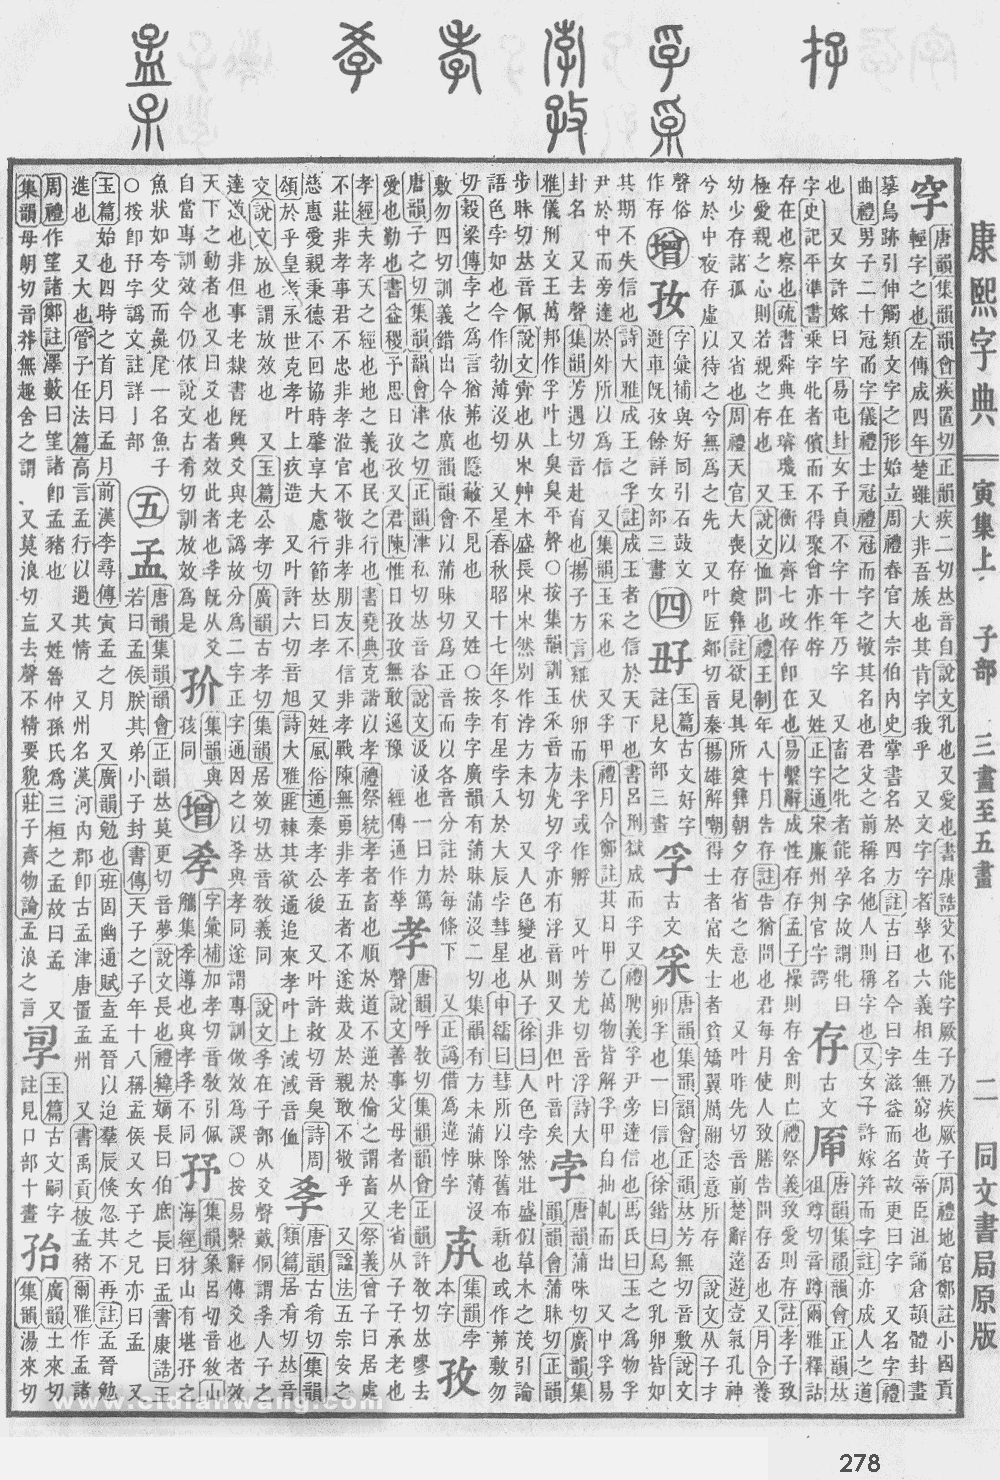 康熙字典 寅集上 子部 三畫至五畫 二 同文書局原版
字 唐韻集韻韻會疾置切正韻疾二切𠀤音自說文乳也又愛也書康誥父不能字厥子乃疾厥子周禮地官鄭註小國貢
輕字之也左傳成四年楚雖大非吾族也其肯字我乎 又文字字者孳也六義相生無窮也黃帝臣沮誦倉頡體卦畫
摹鳥跡引伸觸類文字之形始立周禮春官大宗伯內史掌書名於四方註古曰名今曰字滋益而名故更曰字 又名字禮
曲禮男子二十冠而字儀禮士冠禮冠而字之敬其名也君父之前稱名他人則稱字也又女子許嫁笄而字註亦成人之道
也 又女許嫁曰字易屯卦女子貞不字十年乃字 又畜之牝者能孕字故謂牝曰
字史記平準書乘字牝者儐而不得聚會亦作牸 又姓正字通宋廉州判官字諤 存 古文
存在也察也疏書舜典在璿璣玉衡以齊七政存卽在也易繫辭成性存存孟子操則存舍則亡禮祭義致愛則存註孝子致
極愛親之心則若親之存也 又說文恤問也禮王制年八十月告存註告猶問也君每月使人致膳告問存否也又月令養
幼少存諸孤 又省也周禮天官大喪存奠彝註欲見其所奠彝朝夕存省之意也 又叶昨先切音前楚辭遠遊壹氣孔神
兮於中夜存虛以待之兮無爲之先 又叶匠鄰切音秦揚雄解嘲得士者富失士者貧矯翼厲翮恣意所存 說文从子才
聲俗
作存 增 孜 字彙補與好同引石鼓文
遊車旣孜餘詳女部三畫 四 𡥃 玉篇古文好字
註見女部三畫 孚 古文 唐韻集韻韻會正韻𠀤芳無切音敷說文
卵孚也一曰信也徐鍇曰鳥之乳卵皆如
其期不失信也詩大雅成王之孚註成王者之信於天下也書呂刑獄成而孚又禮聘義孚尹旁達信也馬氏曰玉之爲物孚
尹於中而旁達於外所以爲信 又集韻玉采也 又孚甲禮月令鄭註其日甲乙萬物皆解孚甲自抽軋而出 又中孚易
卦名 又去聲集韻芳遇切音赴育也揚子方言雞伏卵而未孚或作孵 又叶芳尤切音浮詩大
雅儀刑文王萬邦作孚叶上臭臭平聲○按集韻訓玉采音方尤切孚亦有浮音則又非但叶音矣 孛 唐韻蒲昧切廣韻集
韻韻會蒲昧切正韻
步昧切𠀤音佩說文𩕾也从𣎵艸木盛長𣎵𣎵然別作浡方未切 又人色變也从子徐曰人色孛然壯盛似草木之茂引論
語色孛如也今作勃薄沒切 又星春秋昭十七年冬有星孛入於大辰孛彗星也申繻曰彗所以除舊布新也或作茀敷勿
切穀梁傳孛之爲言猶茀也隱蔽不見也 又姓○按孛字廣韻有蒲昧蒲沒二切集韻有方未蒲昧薄沒
敷勿四切訓義錯出今依廣韻韻會以蒲昧切爲正音而以各音分註於每條下 又正譌借爲違悖字 集韻孛
本字 孜
唐韻子之切集韻韻會津之切正韻津私切𠀤音咨說文汲汲也一曰力篤
愛也勤也書益稷予思日孜孜又君陳惟日孜孜無敢逸豫 經傳通作孳 孝 唐韻呼敎切集韻韻會正韻許敎切𠀤哮去
聲說文善事父母者从老省从子子承老也
孝經夫孝天之經也地之義也民之行也書堯典克諧以孝禮祭統孝者畜也順於道不逆於倫之謂畜又祭義曾子曰居處
不莊非孝事君不忠非孝涖官不敬非孝朋友不信非孝戰陳無勇非孝五者不遂裁及於親敢不敬乎 又諡法五宗安之曰孝
慈惠愛親秉德不回協時肇享大慮行節𠀤曰孝 又姓風俗通秦孝公後 又叶許救切音臭詩周
頌於乎皇考永世克孝叶上疚造 又叶許六切音旭詩大雅匪棘其欲遹追來孝叶上淢淢音恤 𡥈 唐韻古肴切集韻
類篇居肴切𠀤音
交說文放也謂放效也 又玉篇公孝切廣韻古孝切集韻居效切𠀤音敎義同 說文𡥈在子部从爻聲戴侗謂𡥈人子之
達道也非但事老隸書旣興爻與老譌故分爲二字正字通因之以𡥈與孝同遂謂專訓倣效爲誤○按易繫辭傳爻也者效
天下之動者也又曰爻也者效此者也𡥈旣从爻
自當專訓效今仍依說文古肴切訓放效爲是 集韻與
孩同 增 孝 字彙補加孝切音敎引佩
觿集孝導也與孝𡥈不同 孖 集韻象呂切音敘山
海經犲山有堪㐨之
魚狀如夸父而彘尾一名魚子
○按卽㐨字譌文註詳亅部 五 孟 唐韻集韻韻會正韻𠀤莫更切音夢說文長也禮緯嫡長曰伯庶長曰孟書康誥王
若曰孟侯朕其弟小子封書傳天子之子年十八稱孟侯又女子之兄亦曰孟 又
玉篇始也四時之首月曰孟月前漢李尋傳寅孟之月 又廣韻勉也班固幽通賦盍孟晉以迨羣辰倏忽其不再註孟晉勉
進也 又大也管子任法篇高言孟行以過其情 又州名漢河內郡卽古孟津唐置孟州 又書禹貢被孟豬爾雅作孟諸
周禮作望諸鄭註澤藪曰望諸卽孟豬也 又姓魯仲孫氏爲三桓之孟故曰孟 又
集韻母朗切音莽無趣舍之謂 又莫浪切𠀤去聲不精要貌莊子齊物論孟浪之言 玉篇古文嗣字
註見口部十畫 孡 廣韻土來切
集韻湯來切
278